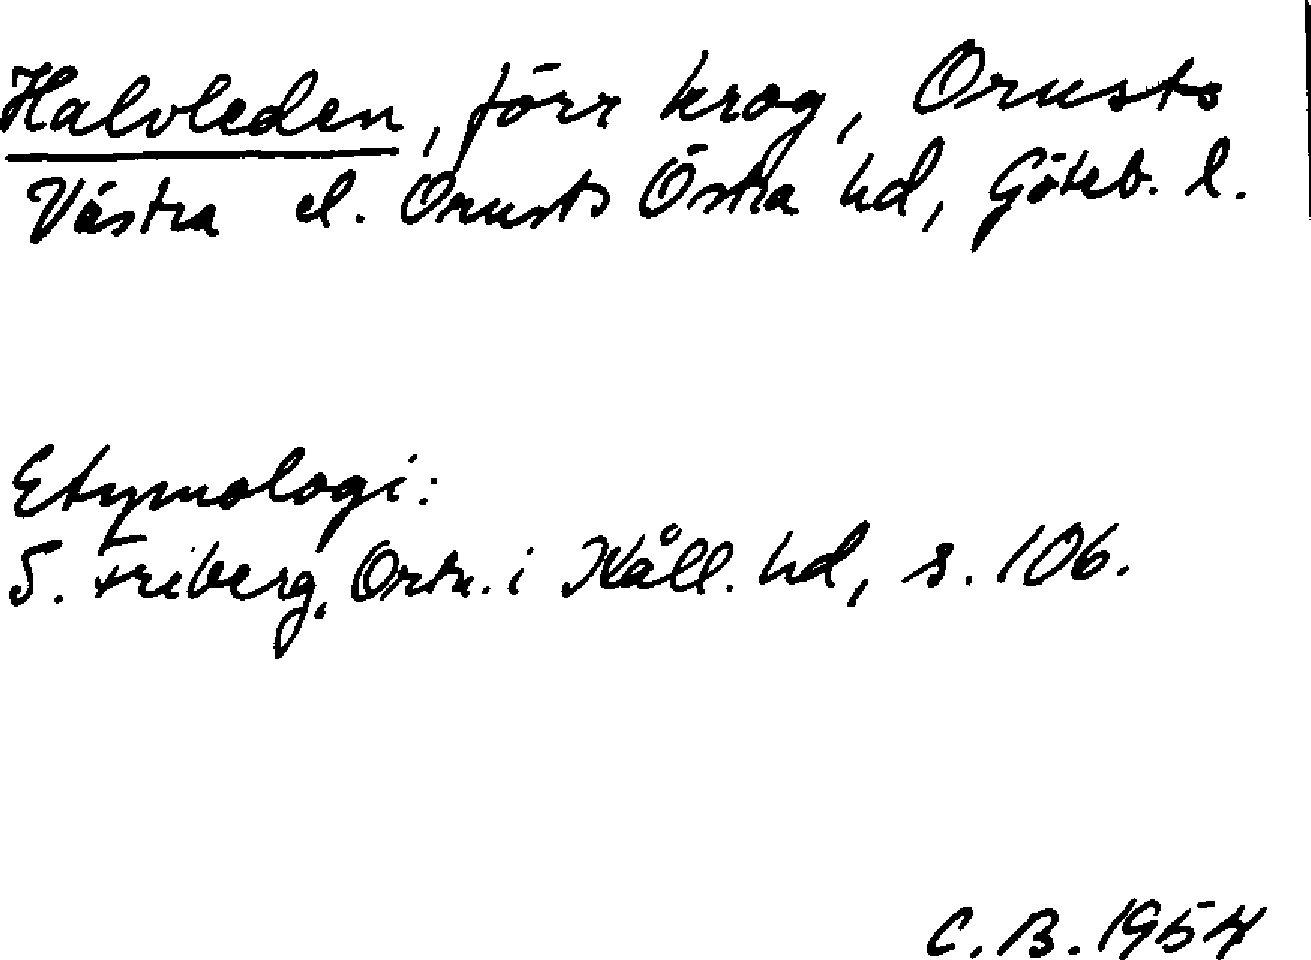 Halvleden, förr krog, Orusts
Västra el. Orusts Östra hd, Göteb. l.
Etymologi:
S. Friberg, Ortn. i Kåll. hd, s. 106.
C. B. 1954